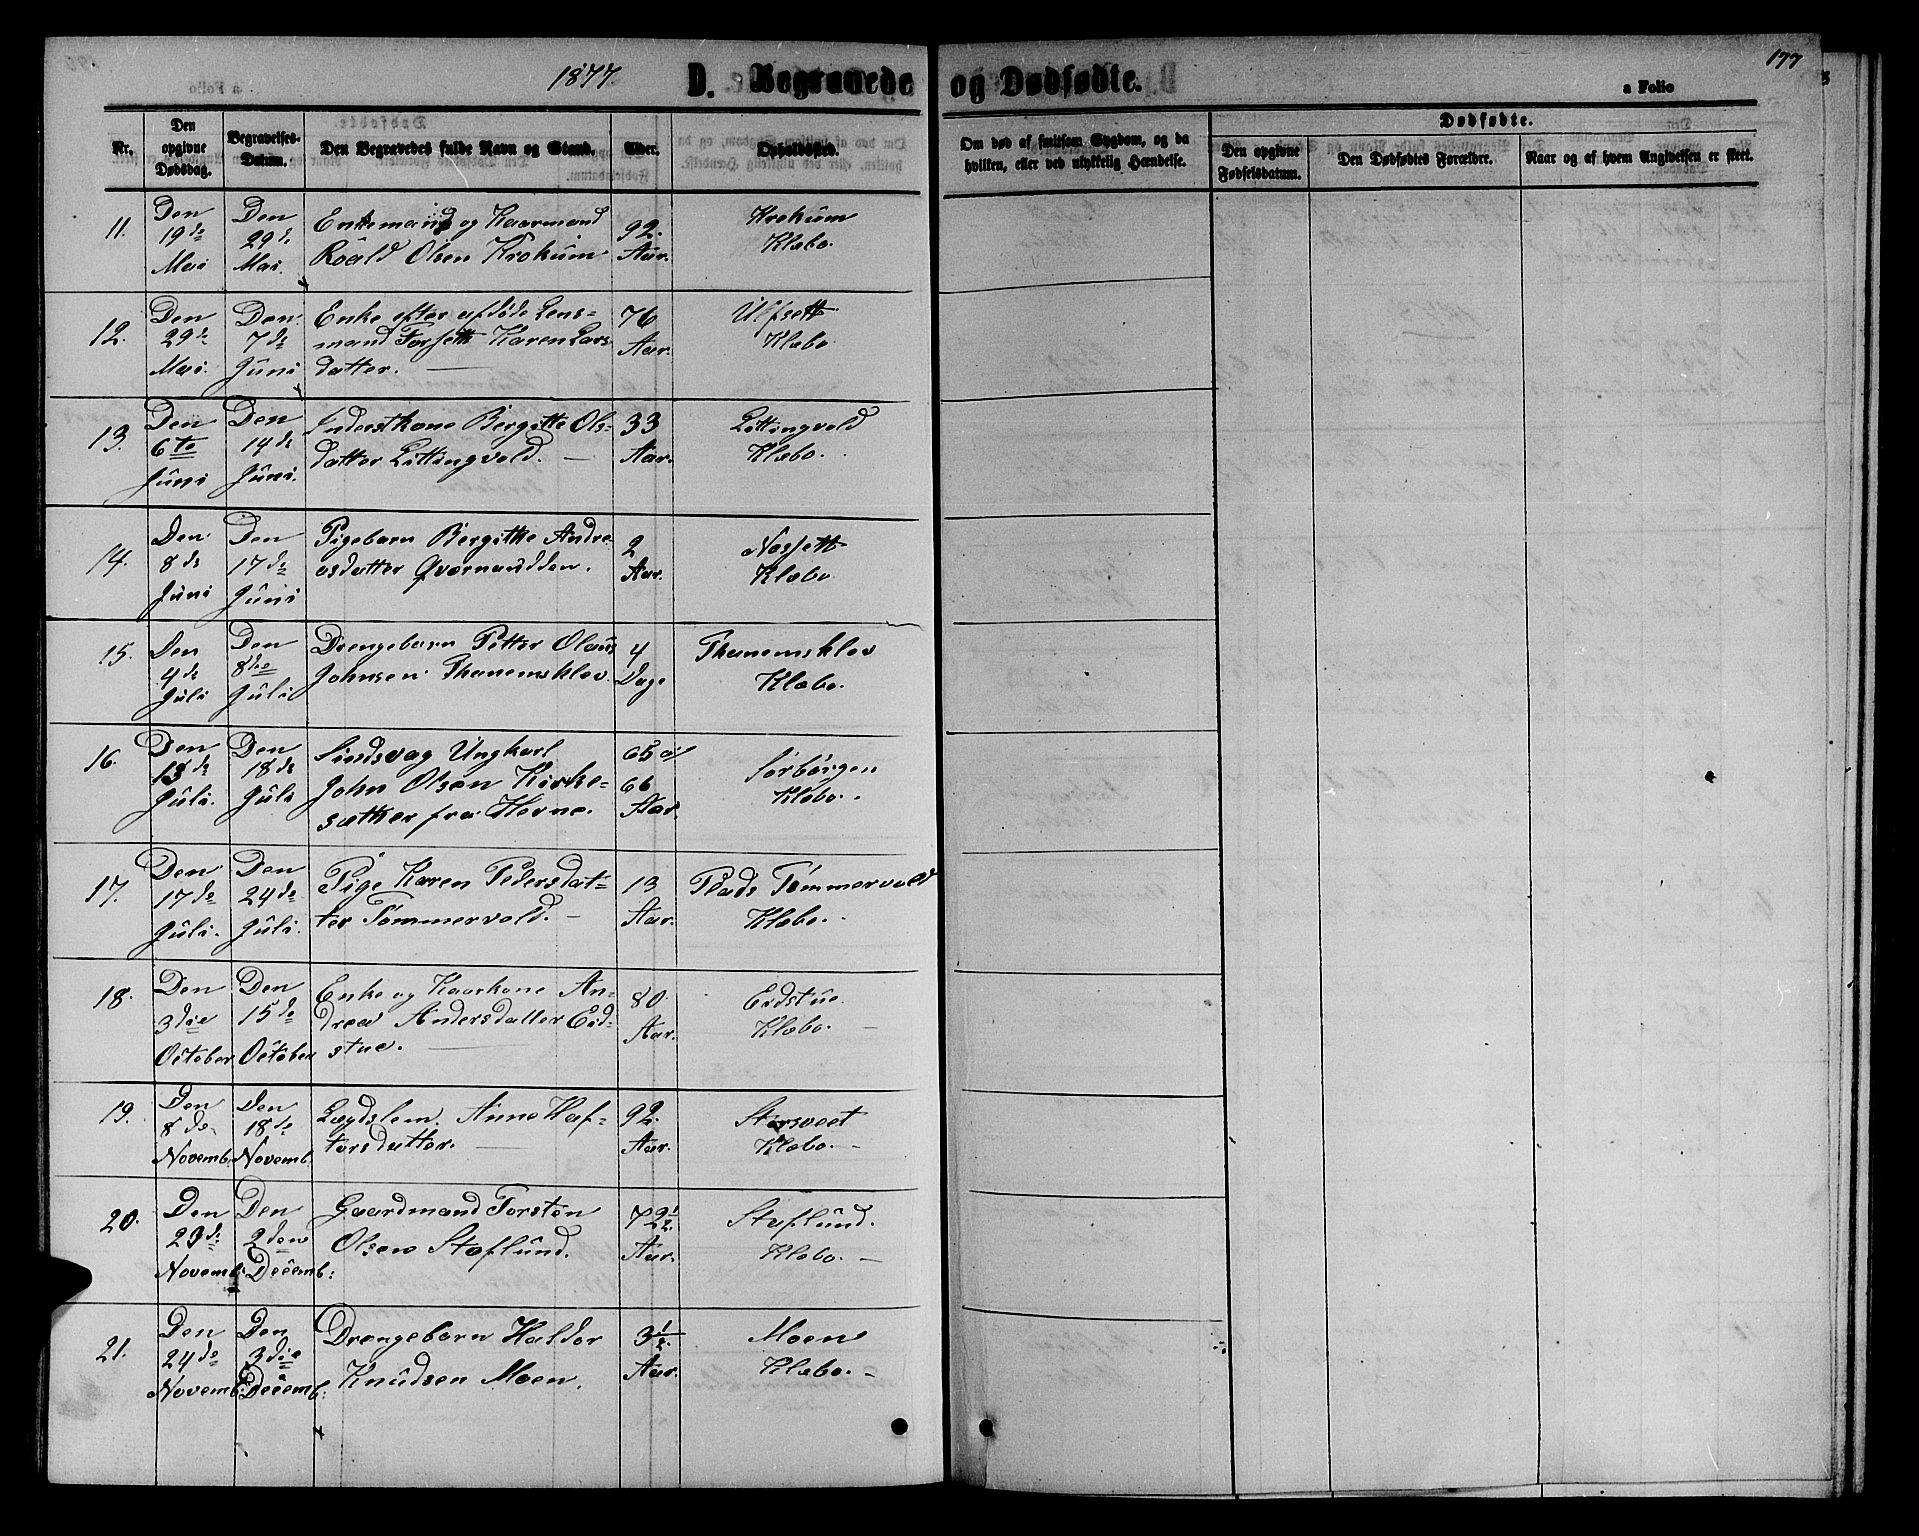 1877.
D. Begravede
og Dødfødte.
177
a Folio
Nr.
Den opgivne Dødsdag.
Begravelses-Datum.
Den Begravedes fulde Navn og Stand.
Alder.
Opholdssted.
Om død af smitsom Sygdom, og da hvilken, eller ved ulykkelig Hændelse.
Dødfødte.
Den opgivne Fødselsdatum.
Den Dødfødtes Forældre.
Naar og af hvem Angivelsen er skeet.
11. Den Den Enkemand og Kaarmand 92. Krokum
19de 29de Roald Olsen Krokum Aar. Klæbo.
Mai Mai.
12. Den Den Enke efter afdøde Lens- 76 Ulfsett
29de 7de mand Forsett Karen Lars Aar. Klæbo
Mai. Juni datter. —
13. Den Den Inderstkone Bergitte Ols- 33 Littingvold
6te 14de datter Littingvold. — Aar. Klæbo.
Juni Juni.
14. Den Den Pigebarn Bergitke Andre 2 Nossett
8de 17de asdatter Qvernrudden. Aar. Klæbo
Juni Juni
15. Den Den Drengebarn Petter Olaus 4 Thanemsklev
4de 8de Johnsen Thanemsklev. Dage Klæbo.
Juli Juli
16. Den Den Sindsvag Ungkarl 65 a/ Sørbørgen
13de 18de John Olsen Kirke- 66 Klæbo.
Juli. Juli sætker fra Herne. Aar.
17. Den Den Pige Karen Pedersdat- 13 Plads Tømmervold
17de 24de ter Tømmervold. — Aar. Klæbo.
Juli. Juli.
18. Den Den Enke og Kaarkone An- 80. Eidstue.
3die 15de drea Andersdatter Eid- Aar. Klæbo. —
October October stue. —
19. Den Den Lægdslem. Anne Haf- 92. Storsveet
8de 18de torsdatter. — Aar. Klæbo. —
Novemb. Novemb.
20. Den Den Gaardmand Torsten 72½. Staflund.
23de 2den Olsen Stæflund. Aar. Klæbo. —
Novemb: Decemb:
21. Den Den Drengebarn Haldor 3½ Moen
24de 3die Knudsen Moen. Aar. Klæbo. —
Novemb: Decemb: